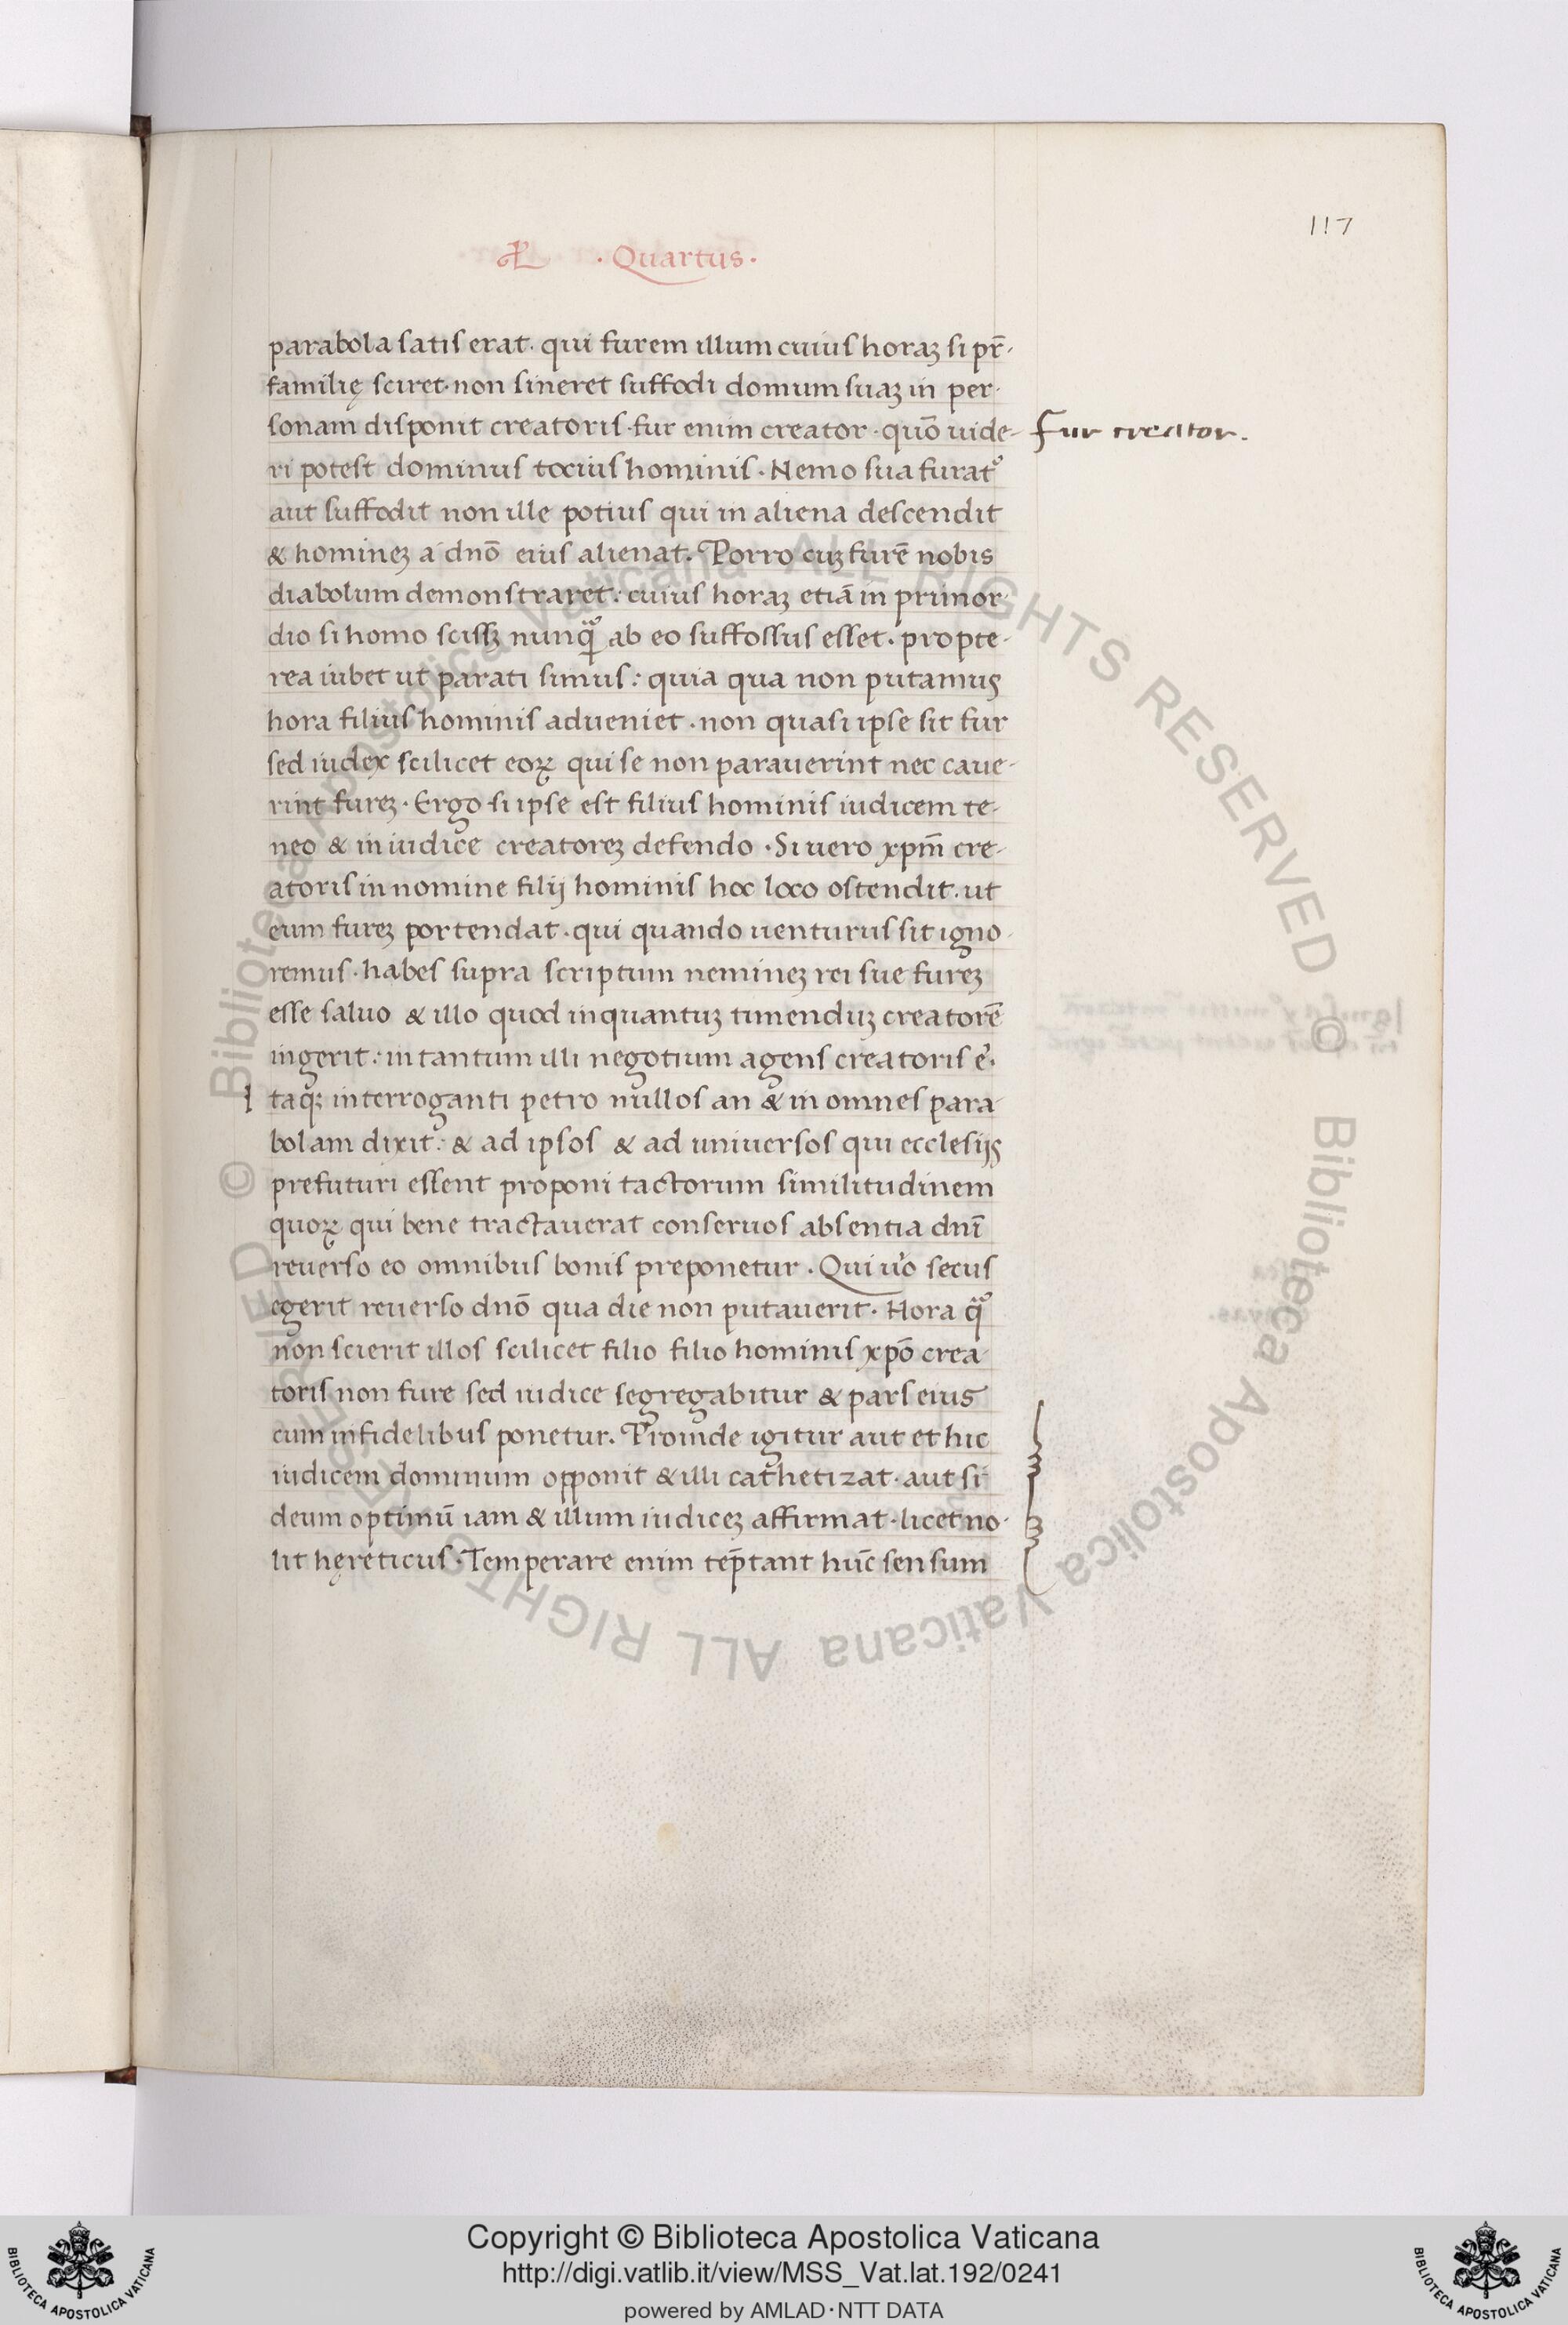 117
· Quartus ·
parabola satis erat· qui furem illum cuius horaꝫ si pr̄-
familię sciret· non sineret suffodi domum suaꝫ in per-
sonam disponit creatoris· fur enim creator · quō uide-
Fur creator.
ri potest dominus tocius hominis · Nemo sua furat᷒
aut suffodit non ille potius qui in aliena descendit
& homineꝫ a dnō eius alienat. Porro cuꝫ furē nobis
diabolum demonstraret: cuius horaꝫ etiā in primor-
dio si homo scissꝫ nunꝗᷓ ab eo suffossus esset. propte-
rea iubet ut parati simus: quia qua non putamus
hora filius hominis adueniet · non quasi ipse sit fur
sed iudex scilicet eoꝝ qui se non parauerint nec caue-
rint fureꝫ · Ergo si ipse est filius hominis iudicem te-
neo & in iudice creatoreꝫ defendo · Si uero xpm̄ cre-
atoris in nomine filij hominis hoc loco ostendit. ut
eum fureꝫ portendat · qui quando uenturus sit igno-
remus · habes supra scriptum nemineꝫ rei sue fureꝫ
esse saluo & illo quod inquantuꝫ timenduꝫ creatorē
ingerit: in tantum illi negotium agens creatoris ē·
I taqꝫ interroganti petro nullos an & in omnes para-
bolam dixit: & ad ipsos & ad uniuersos qui ecclesijs
prefuturi essent proponi tactorum similitudinem
quoꝝ qui bene tractauerat conseruos absentia dnī
reuerso eo omnibus bonis preponetur . Qui u̓o secus
egerit reuerso dnō qua die non putauerit · Hora qᷓ
non scierit illos scilicet filio filio hominis xpō crea-
toris non fure sed iudice segregabitur & pars eius
cum infidelibus ponetur. Proinde igitur aut et hic
iudicem dominum opponit & illi cathetizat · aut si
deum optimū iam & illum iudiceꝫ affirmat · licet no-
lit hęreticus · Temperare enim tep̄tant hūc sensum
Copyright © Biblioteca Apostolica Vaticana
http://digi.vatlib.it/view/MSS_Vat.lat.192/0241
powered by AMLAD · NTT DATA
BIBLIOTECA APOSTOLICA VATICANA
BIBLIOTECA APOSTOLICA VATICANA
© Biblioteca Apostolica Vaticana ALL RIGHTS RESERVED
© Biblioteca Apostolica Vaticana ALL RIGHTS RESERVED